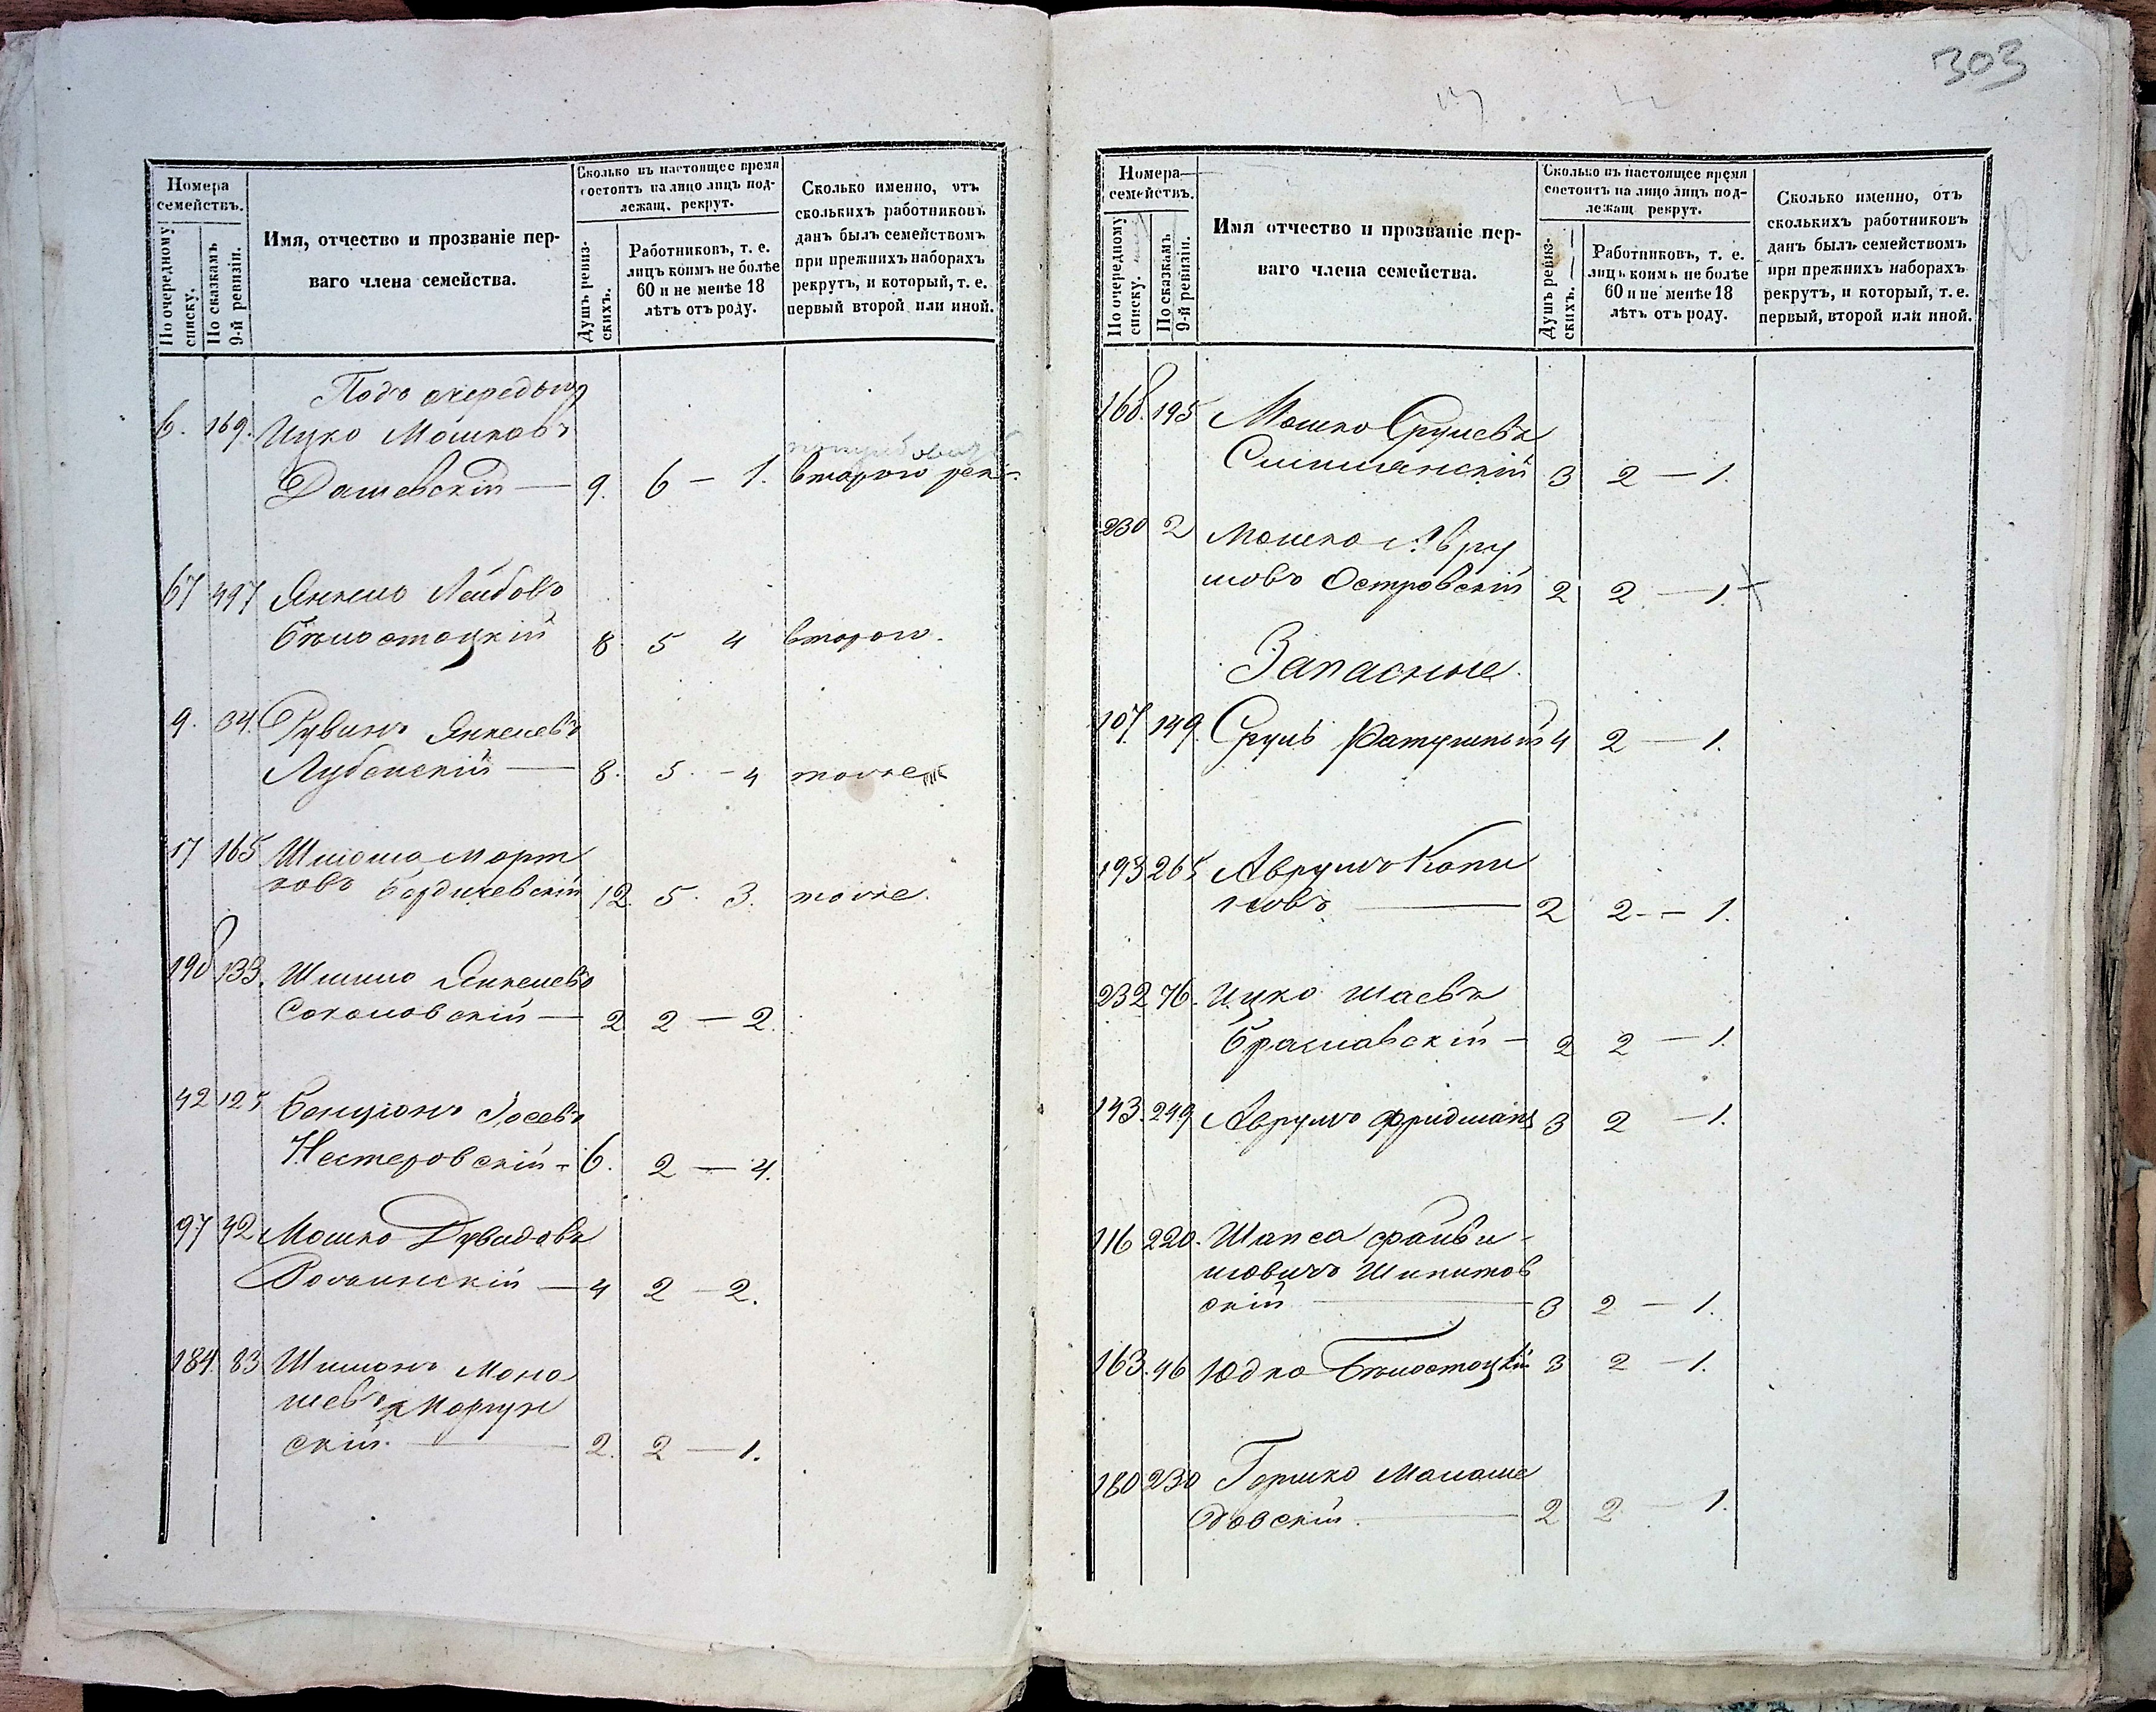 303
Номера
семействъ.
По очередному
списку.
По сказкамъ
9-й ревизіи.
Имя, отчество и прозваніе пер-
ваго члена семейства.
Сколько въ настоящее время
состоитъ на лицо лицъ под-
лежащ. рекрут.
Душъ ревиз-
скихъ.
Работниковъ, т. е.
лицъ коимъ не болѣе
60 и не менѣе 18
лѣтъ отъ роду.
Сколько именно, отъ
сколькихъ работниковъ
данъ былъ семействомъ
при прежнихъ наборахъ
рекрутъ, и который, т. е.
первый второй или иной.
Подъ очередью
6. 169. Ицко Мошковъ
Дашевскій — 9. 6 — 1. второго рек.
67 497 Янкель Лейбовъ
Бѣлостоцкій 8 5 4 второго.
9. 34. Рувинъ Янкелевъ
Лубенскій — 8. 5. - 4 тоже
17 165 Шлиома Морт
ковъ Бердичевскій 12. 5. 3. тоже.
198 133. Шмуль Янкелевъ
Соколовскій — 2 2 — 2.
42 125 Бенціонъ Іосевъ
Нестеровскій - 6. 2 — 4.
97 42 Мошко Дувидовъ
— 4 2 — 2.
184. 83 Шимонъ Мона
шевъ Моргун
скій. — 2. 2 — 1.
Номера
семействъ.
По очередному
списку.
По сказкамъ
9-й ревизіи.
Имя отчество и прозваніе пер-
ваго члена семейства.
Сколько въ настоящее время
состоитъ на лицо лицъ под-
лежащ рекрут.
Душъ ревиз-
скихъ.
Работниковъ, т. е.
лицъ коимъ не болѣе
60 и не менѣе 18
лѣтъ отъ роду.
Сколько именно, отъ
сколькихъ работниковъ
данъ былъ семействомъ
при прежнихъ наборахъ
рекрутъ, и который, т. е.
первый, второй или иной.
168. 195 Мошко Срулевъ
Смилянскій 3 2 — 1.
230 2 Мошко Авру
мовъ Островскій 2 2 — 1.
Запасные.
107. 149. Сруль Ратушный 4 2 — 1.
193 265 Аврумъ Копи
ловъ — 2 2 — 1.
232 76. Ицко Шаевъ
Браславскій — 2 2 — 1.
143. 249 Аврумъ Фридманъ 3 2 — 1.
116 220. Шапса Файви-
шовичъ Шипитов
скій — 3 2 — 1.
163. 46 Юдко Бѣлостоцкій 3 2 — 1.
180 230 Гершко
— 2 2 — 1.